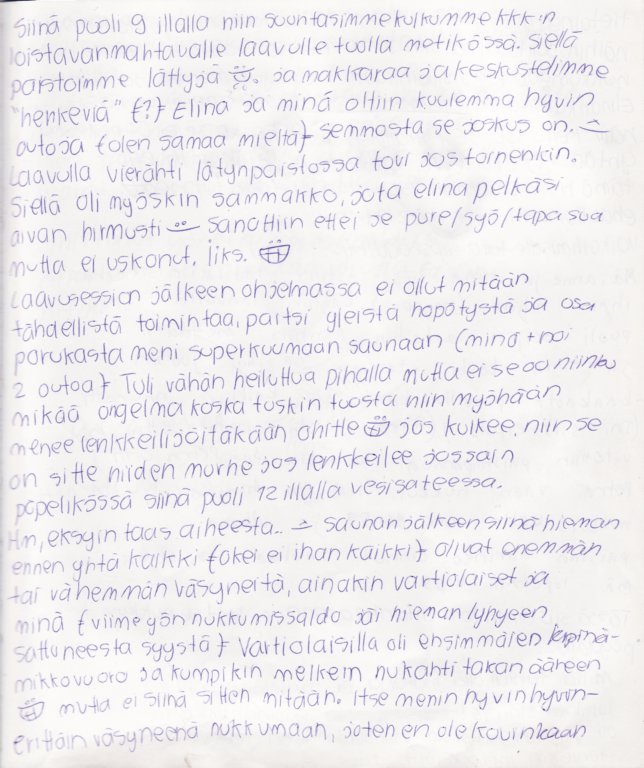 Siinä puoli 9 illalla niin suuntasimme kulkumme kkk:n
loistavanmahtavalle laavulle tuolla metikössä. Siellä
paistoimme lättyjä. ja makkaraa ja keskustelimme
"henkeviä" (?) Elina ja minä oltiin kuulemma hyvin
outoja (olen samaa mieltä) semmosta se joskus on.
Laavulla vierähti lätynpaistossa tovi jos toinenkin.
Siellä oli myöskin sammakko, jota elina pelkäsi
aivan hirmusti sanottiin ettei se pure/syö/tapa sua
mutta ei uskonut. Iiks.
Laavusession jälkeen ohjelmassa ei ollut mitään
tähdellistä toimintaa, paitsi yleistä höpötystä ja osa
porukasta meni superkuumaan saunaan (minä + noi
2 outoa) Tuli vähän heiluttua pihalla mutta ei se oo niinku
mikää ongelma koska tuskin tuosta niin myöhään
menee lenkkeilijöitäkään ohitte jos kulkee, niin se
on sitte niiden murhe jos lenkkeilee jossain
pöpelikössä siinä puoli 12 illalla vesisateessa.
Hm, eksyin taas aiheesta.. saunan jälkeen siinä hieman
ennen yhtä kaikki (okei ei ihan kaikki) olivat enemmän
tai vähemmän väsyneitä, ainakin vartiolaiset ja
minä (viime yön nukkumissaldo jäi hieman lyhyeen
sattuneesta syystä) Vartiolaisilla oli ensimmäien
mikkovuoro ja kumpikin melkein nukahti takan ääreen
mutta ei siinä sitten mitään. Itse menin hyvin hyvin-
erittäin väsyneenä nukkumaan, joten en ole kovinkaan